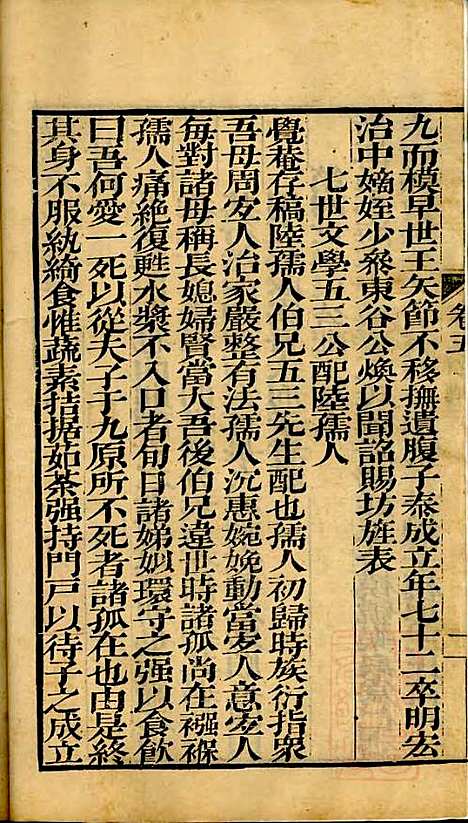 卷五
九而模早世王矢節不移撫遺腹子泰成立年七十二卒明宏
治中嫡姪少叅東谷公煥以聞詔賜坊旌表
七世文學五三公配陸孺人
覺菴存稿陸孺人伯兄五三先生配也孺人初歸時族衍指衆
吾母周安人治家嚴整有法孺人沉惠婉娩動當安人意安人
每對諸母稱長媳婦賢當大吾後伯兄違世時諸孤尚在襁褓
孺人痛絶復甦水漿不入口者旬日諸娣姒環守之强以食飲
曰吾何愛一死以從夫子于九原所不死者諸孤在也由是終
其身不服紈綺食惟蔬素拮据茹荼强持門戸以待子之成立